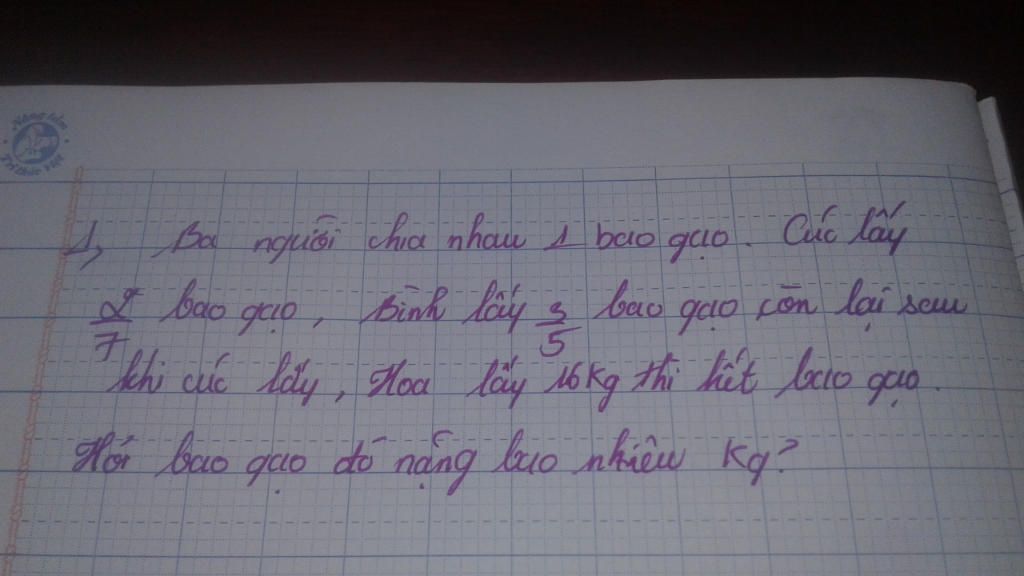 Nâng tầm
Tri thức Việt
1, Ba người chia nhau 1 bao gạo. Cúc lấy
2/7 bao gạo, Bình lấy 3/5 bao gạo còn lại sau
khi cúc lấy, Hoa lấy 16kg thì hết bao gạo.
Hỏi bao gạo đó nặng bao nhiêu kg?